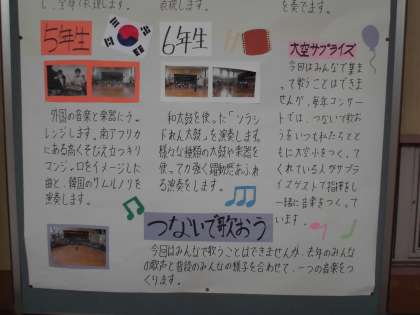 5年生
外国の音楽と楽器にチャ
レンジします。南アフリカ
にある高くそびえ立つキリ
マンジャロをイメージした
曲と、韓国のサムルノリを
演奏します。
6年生
和太鼓を使った「ソーラン
を演奏します。
様々な種類の太鼓や楽器を
使って力強く躍動感あふれ
る演奏をします。
大空サプライズ
今回はみんなで集ま
って歌うことはできま
せんが、毎年コンサー
トでは、つないで歌お
ともに大空小をつくって
くれている人がサプラ
イズゲストで指揮をし
一緒に音楽をつくって
います。
つないで歌おう
今回はみんなで歌うことはできませんが、去年のみんな
の歌声と普段のみんなの様子を合わせて、一つの音楽をつ
くります。